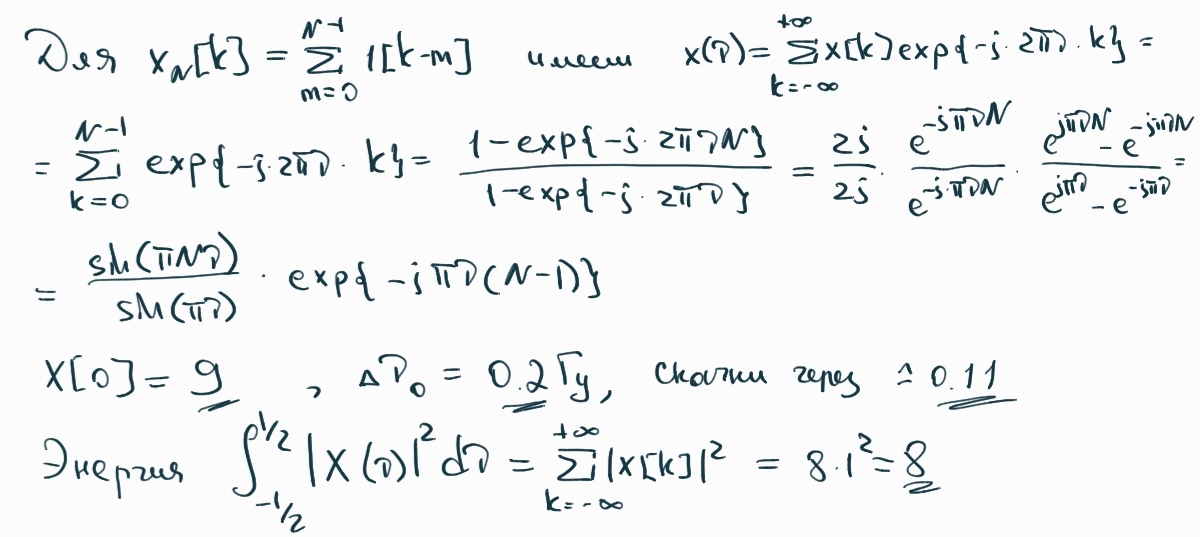 Для x_N[k] = ∑_{m=0}^{N-1} 1[k-m] имеем X(ν) = ∑_{k=-∞}^{+∞} x[k] exp{-j·2πν·k} =
= ∑_{k=0}^{N-1} exp{-j·2πν·k} = (1-exp{-j·2πνN})/(1-exp{-j·2πν}) = 2j/2j · e^{-jπνN}/e^{-jπνN} · (e^{jπνN} - e^{-jπνN})/(e^{jπν} - e^{-jπν}) =
= sin(πNν)/sin(πν) · exp{-jπν(N-1)}
X[0] = 9, Δν₀ = 0.2 Гц, скачки через ≈ 0.11
Энергия ∫_{-1/2}^{1/2} |X(ν)|² dν = ∑_{k=-∞}^{+∞} |x[k]|² = 8·1² = 8